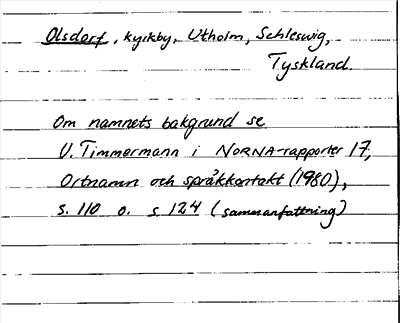 Olsdorf, kyrkby, Utholm, Schleswig,
Tyskland.
Om namnets bakgrund se
U. Timmermann i NORNA-rapporter 17,
Ortnamn och språkkontakt (1980),
s. 110 o. s. 124 (sammanfattning)